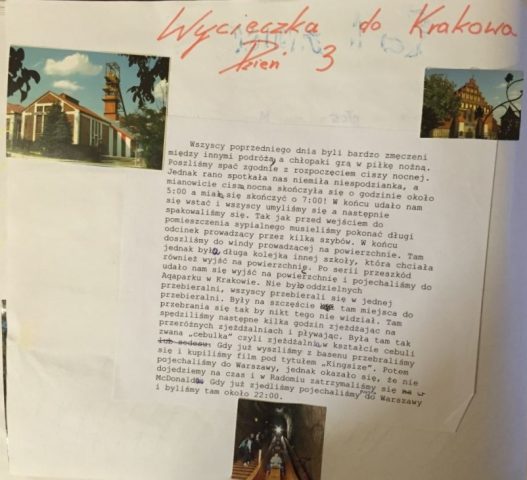 Wycieczka do Krakowa
Dzień 3
Wszyscy poprzedniego dnia byli bardzo zmęczeni
między innymi podróżą a chłopaki grą w piłkę nożną.
Poszliśmy spać zgodnie z rozpoczęciem ciszy nocnej.
Jednak rano spotkała nas niemiła niespodzianka, a
mianowicie cisza nocna skończyła się o godzinie około
5:00 a miała się skończyć o 7:00! W końcu udało nam
się wstać i wszyscy umyliśmy się a następnie
spakowaliśmy się. Tak jak przed wejściem do
pomieszczenia sypialnego musieliśmy pokonać długi
odcinek prowadzący przez kilka szybów. W końcu
doszliśmy do windy prowadzącej na powierzchnie. Tam
jednak była długa kolejka innej szkoły, która chciała
również wyjść na powierzchnię. Po serii przeszkód
udało nam się wyjść na powierzchnię i pojechaliśmy do
Aqaparku w Krakowie. Nie było oddzielnych
przebieralni, wszyscy przebierali się w jednej
przebieralni. Były na szczęście tam miejsca do
przebrania się tak by nikt tego nie widział. Tam
spędziliśmy następne kilka godzin zjeżdżając na
przeróżnych zjeżdżalniach i pływając. Była tam tak
zwana „cebulka” czyli zjeżdżalnia w kształcie cebuli
lub sedesu. Gdy już wyszliśmy z basenu przebraliśmy
się i kupiliśmy film pod tytułem „Kingsize”. Potem
pojechaliśmy do Warszawy, jednak okazało się, że nie
dojedziemy na czas i w Radomiu zatrzymaliśmy się na w
McDonalds. Gdy już zjedliśmy pojechaliśmy do Warszawy
i byliśmy tam około 22:00.